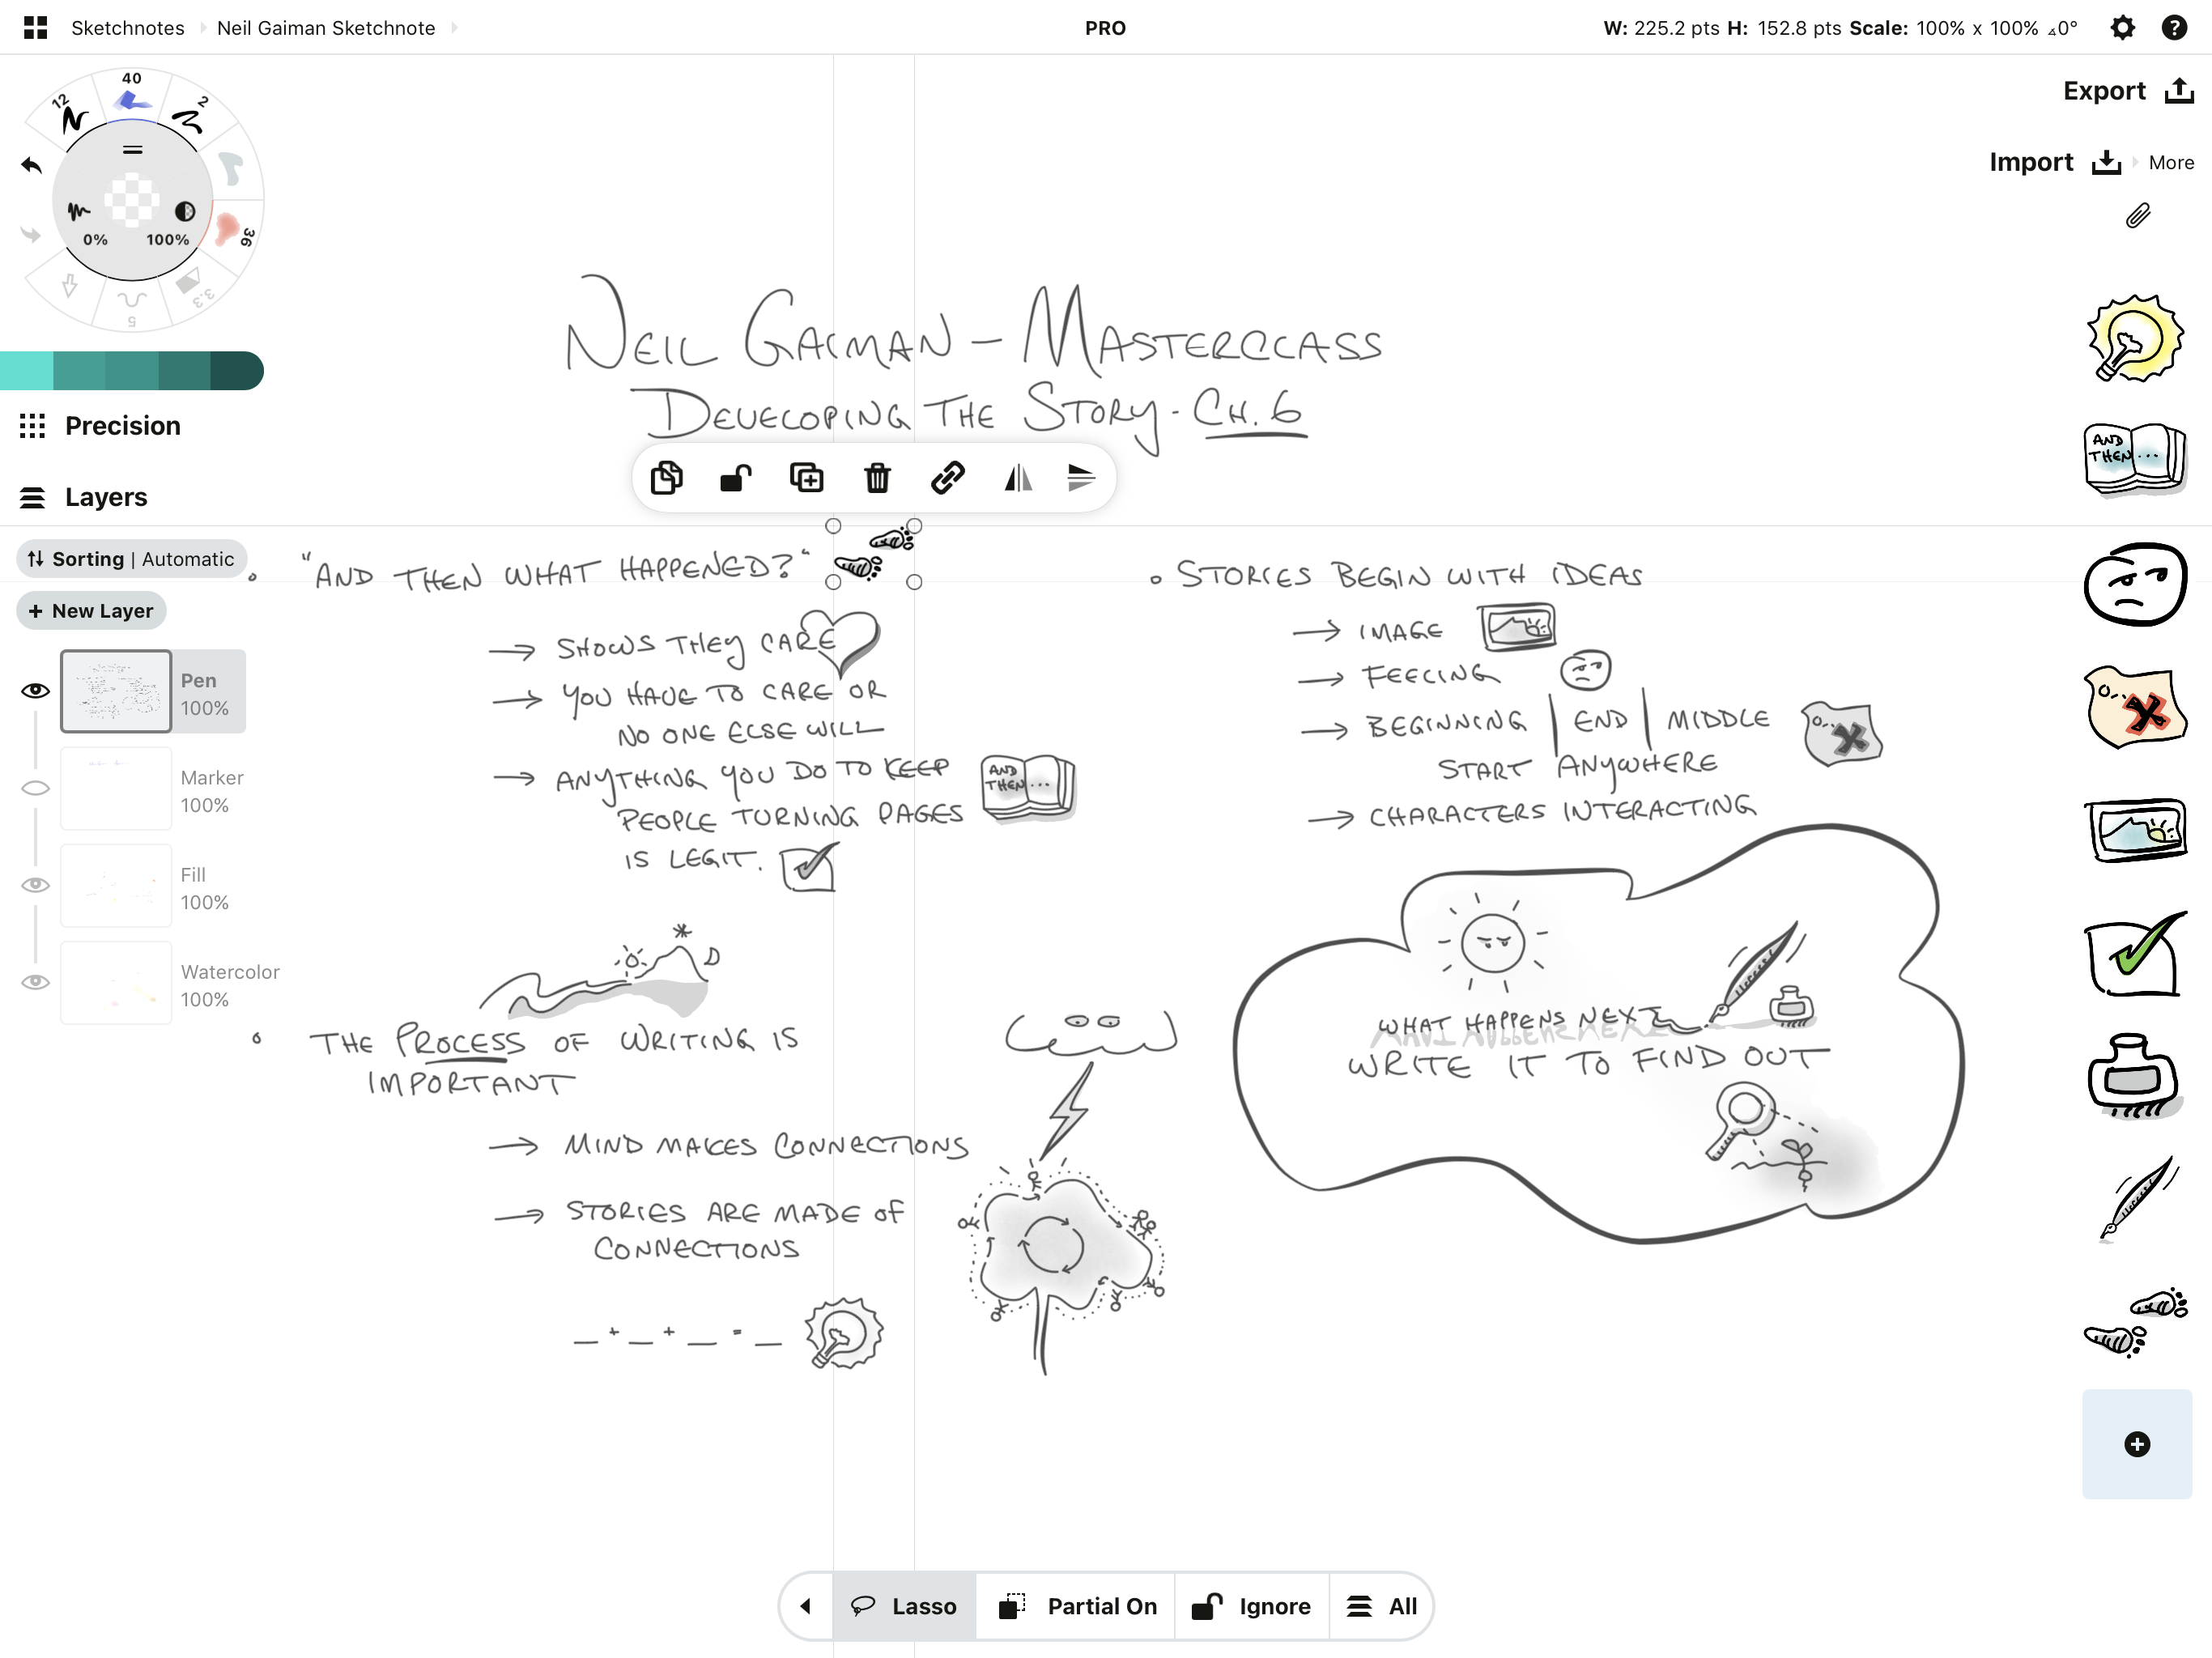 Sketchnotes Neil Gaiman Sketchnote
PRO
W: 225.2 pts H: 152.8 pts Scale: 100% x 100% ⊿0°
?
Export
Import
More
12
40
2
36
3.3
5
0%
100%
Precision
Layers
Sorting | Automatic
+ New Layer
Pen
100%
Marker
100%
Fill
100%
Watercolor
100%
NEIL GAIMAN - MASTERCLASS
DEVELOPING THE STORY - CH. 6
"AND THEN WHAT HAPPENED?"
→ SHOWS THEY CARE
→ YOU HAVE TO CARE OR
NO ONE ELSE WILL
→ ANYTHING YOU DO TO KEEP
PEOPLE TURNING PAGES
IS LEGIT.
AND
THEN ...
THE PROCESS OF WRITING IS
IMPORTANT
→ MIND MAKES CONNECTIONS
→ STORIES ARE MADE OF
CONNECTIONS
_ + _ + _ = _
STORIES BEGIN WITH IDEAS
→ IMAGE
→ FEELING
→ BEGINNING | END | MIDDLE
START ANYWHERE
→ CHARACTERS INTERACTING
WHAT HAPPENS NEXT
WRITE IT TO FIND OUT
AND
THEN ...
Lasso
Partial On
Ignore
All